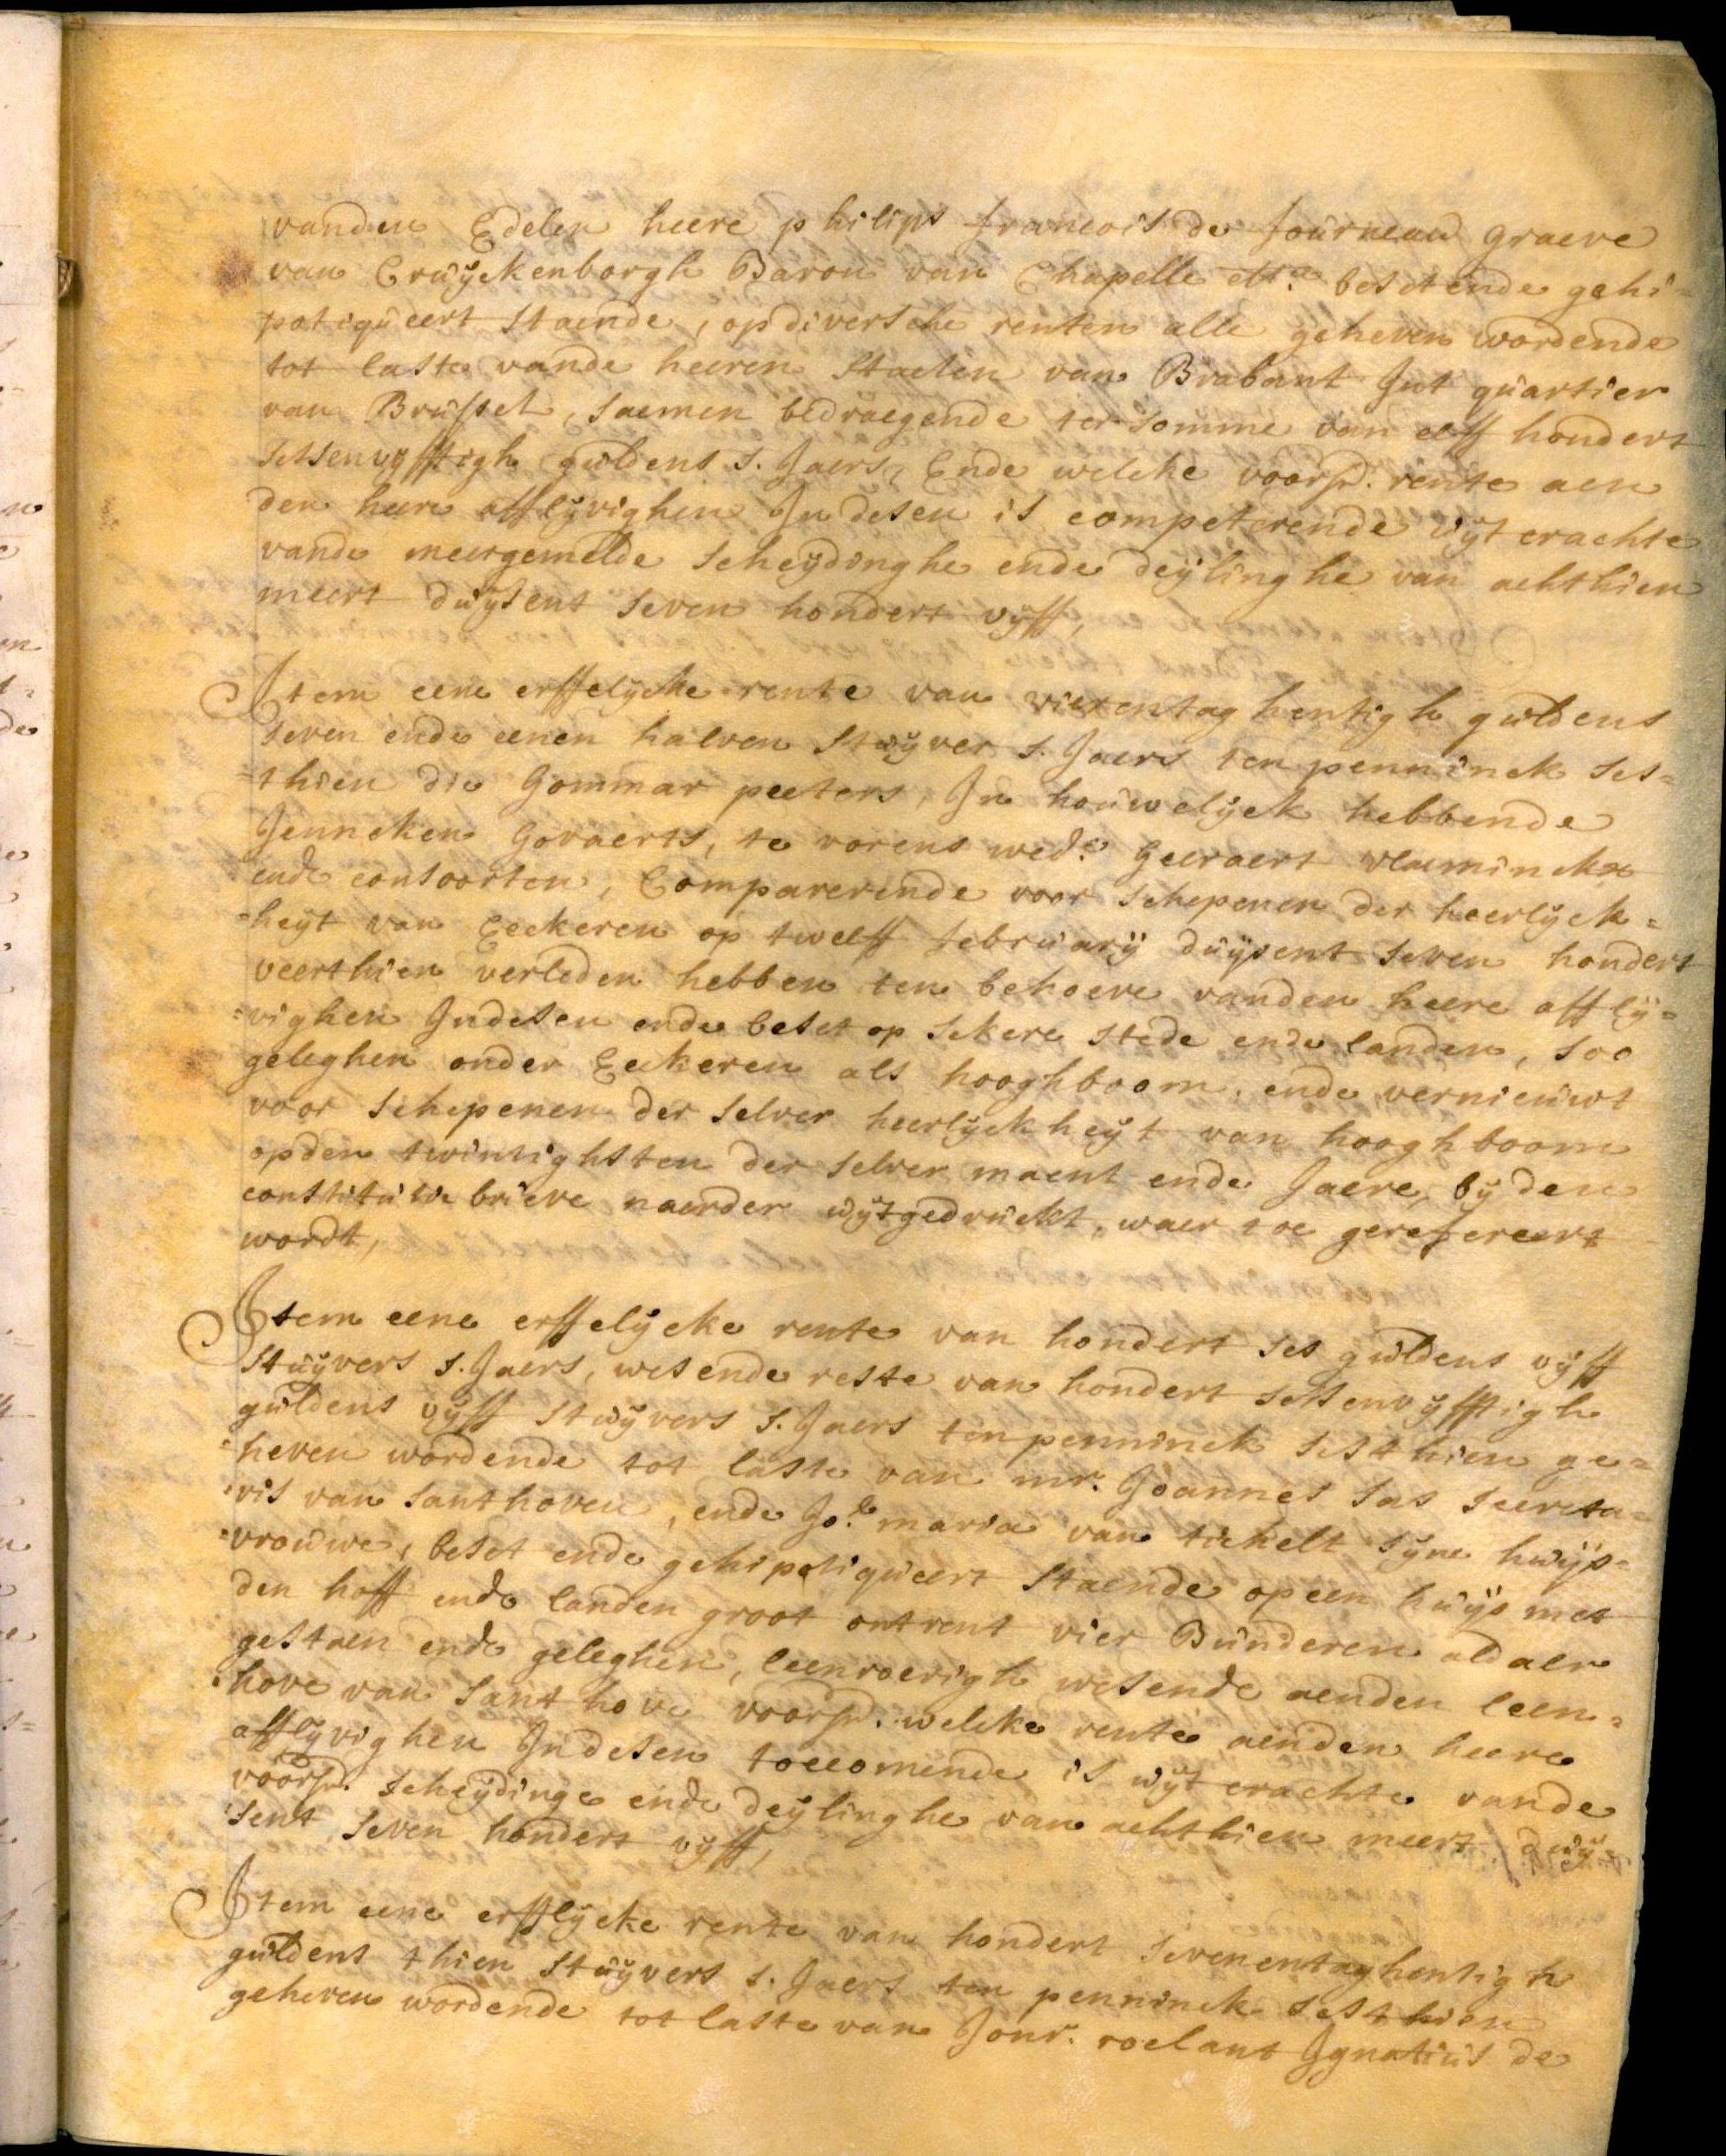 vanden Edelen heere philips francois de fourneau graeve
van Cruyckenborgh Baron van Chapelle etca. beset ende gehi=
potiqueert staende, op diversche renten alle geheven wordende
tot laste vande heeren Staeten van Brabant Int quartier
van Brussel, saemen bedraegende ter somme van elff hondert
sessenvyfftigh guldens s. Jaers, Ende welcke voorsr. rente aen
den heere afflyvighen In desen is competerende uyt crachte
vande meergemelde scheydinghe ende deylinghe van achthien
meert duysent seven hondert vyff,
Item eene erffelycke rente van vierentaghentigh guldens
seven ende eenen halven stuyver s. Jaers ten penninck ses=
=thien die Gommar peeters, In houwelyck hebbende
Jenneken Govaerts, te vorens wede. Geeraert vleminckx
ende consoorten, Comparerende voor schepenen der heerlyck=
=heyt van Eeckeren op twelff february duysent seven hondert
veerthien verleden hebben ten behoeve vanden heere affly=
=vighen Indesen ende beset op sekere stede ende landen, soo
geleghen onder Eeckeren als hooghboom, ende vernieuwt
voor schepenen der selver heerlyckheyt van hooghboom
opden twintighsten der selver maent ende Jaere, by den
constitutie brieve naerder uytgedruckt, waer toe gerefereert
wordt,
Item eene erffelycke rente van hondert ses guldens vyff
stuyvers s. Jaers, wesende reste van hondert sessenvyfftigh
guldens vyff stuyvers s. Jaers ten penninck sesthien ge=
=heven wordende tot laste van mr. Joannes Sas secreta=
=ris van Santhoven, ende Joe. maria van tichelt syne huys=
=vrouwe, beset ende gehipotiqueert staende op een huys met
den hoff ende landen groot ontrent vier Bunderen aldaer
gestaen ende geleghen, leenroerigh wesende aenden leen=
=hove van Santhove voorsr. welcke rente aenden heere
afflyvighen Indesen toecomende is uyt crachte vande
voorsr. scheydinge ende deylinghe van achthien meert duy=
sent seven hondert vyff,
Item eene erfflycke rente van hondert sevenentaghentigh
guldens thien stuyvers s. Jaers ten penninck sesthien
geheven wordende tot laste van Jonr. roelant Ignatius de